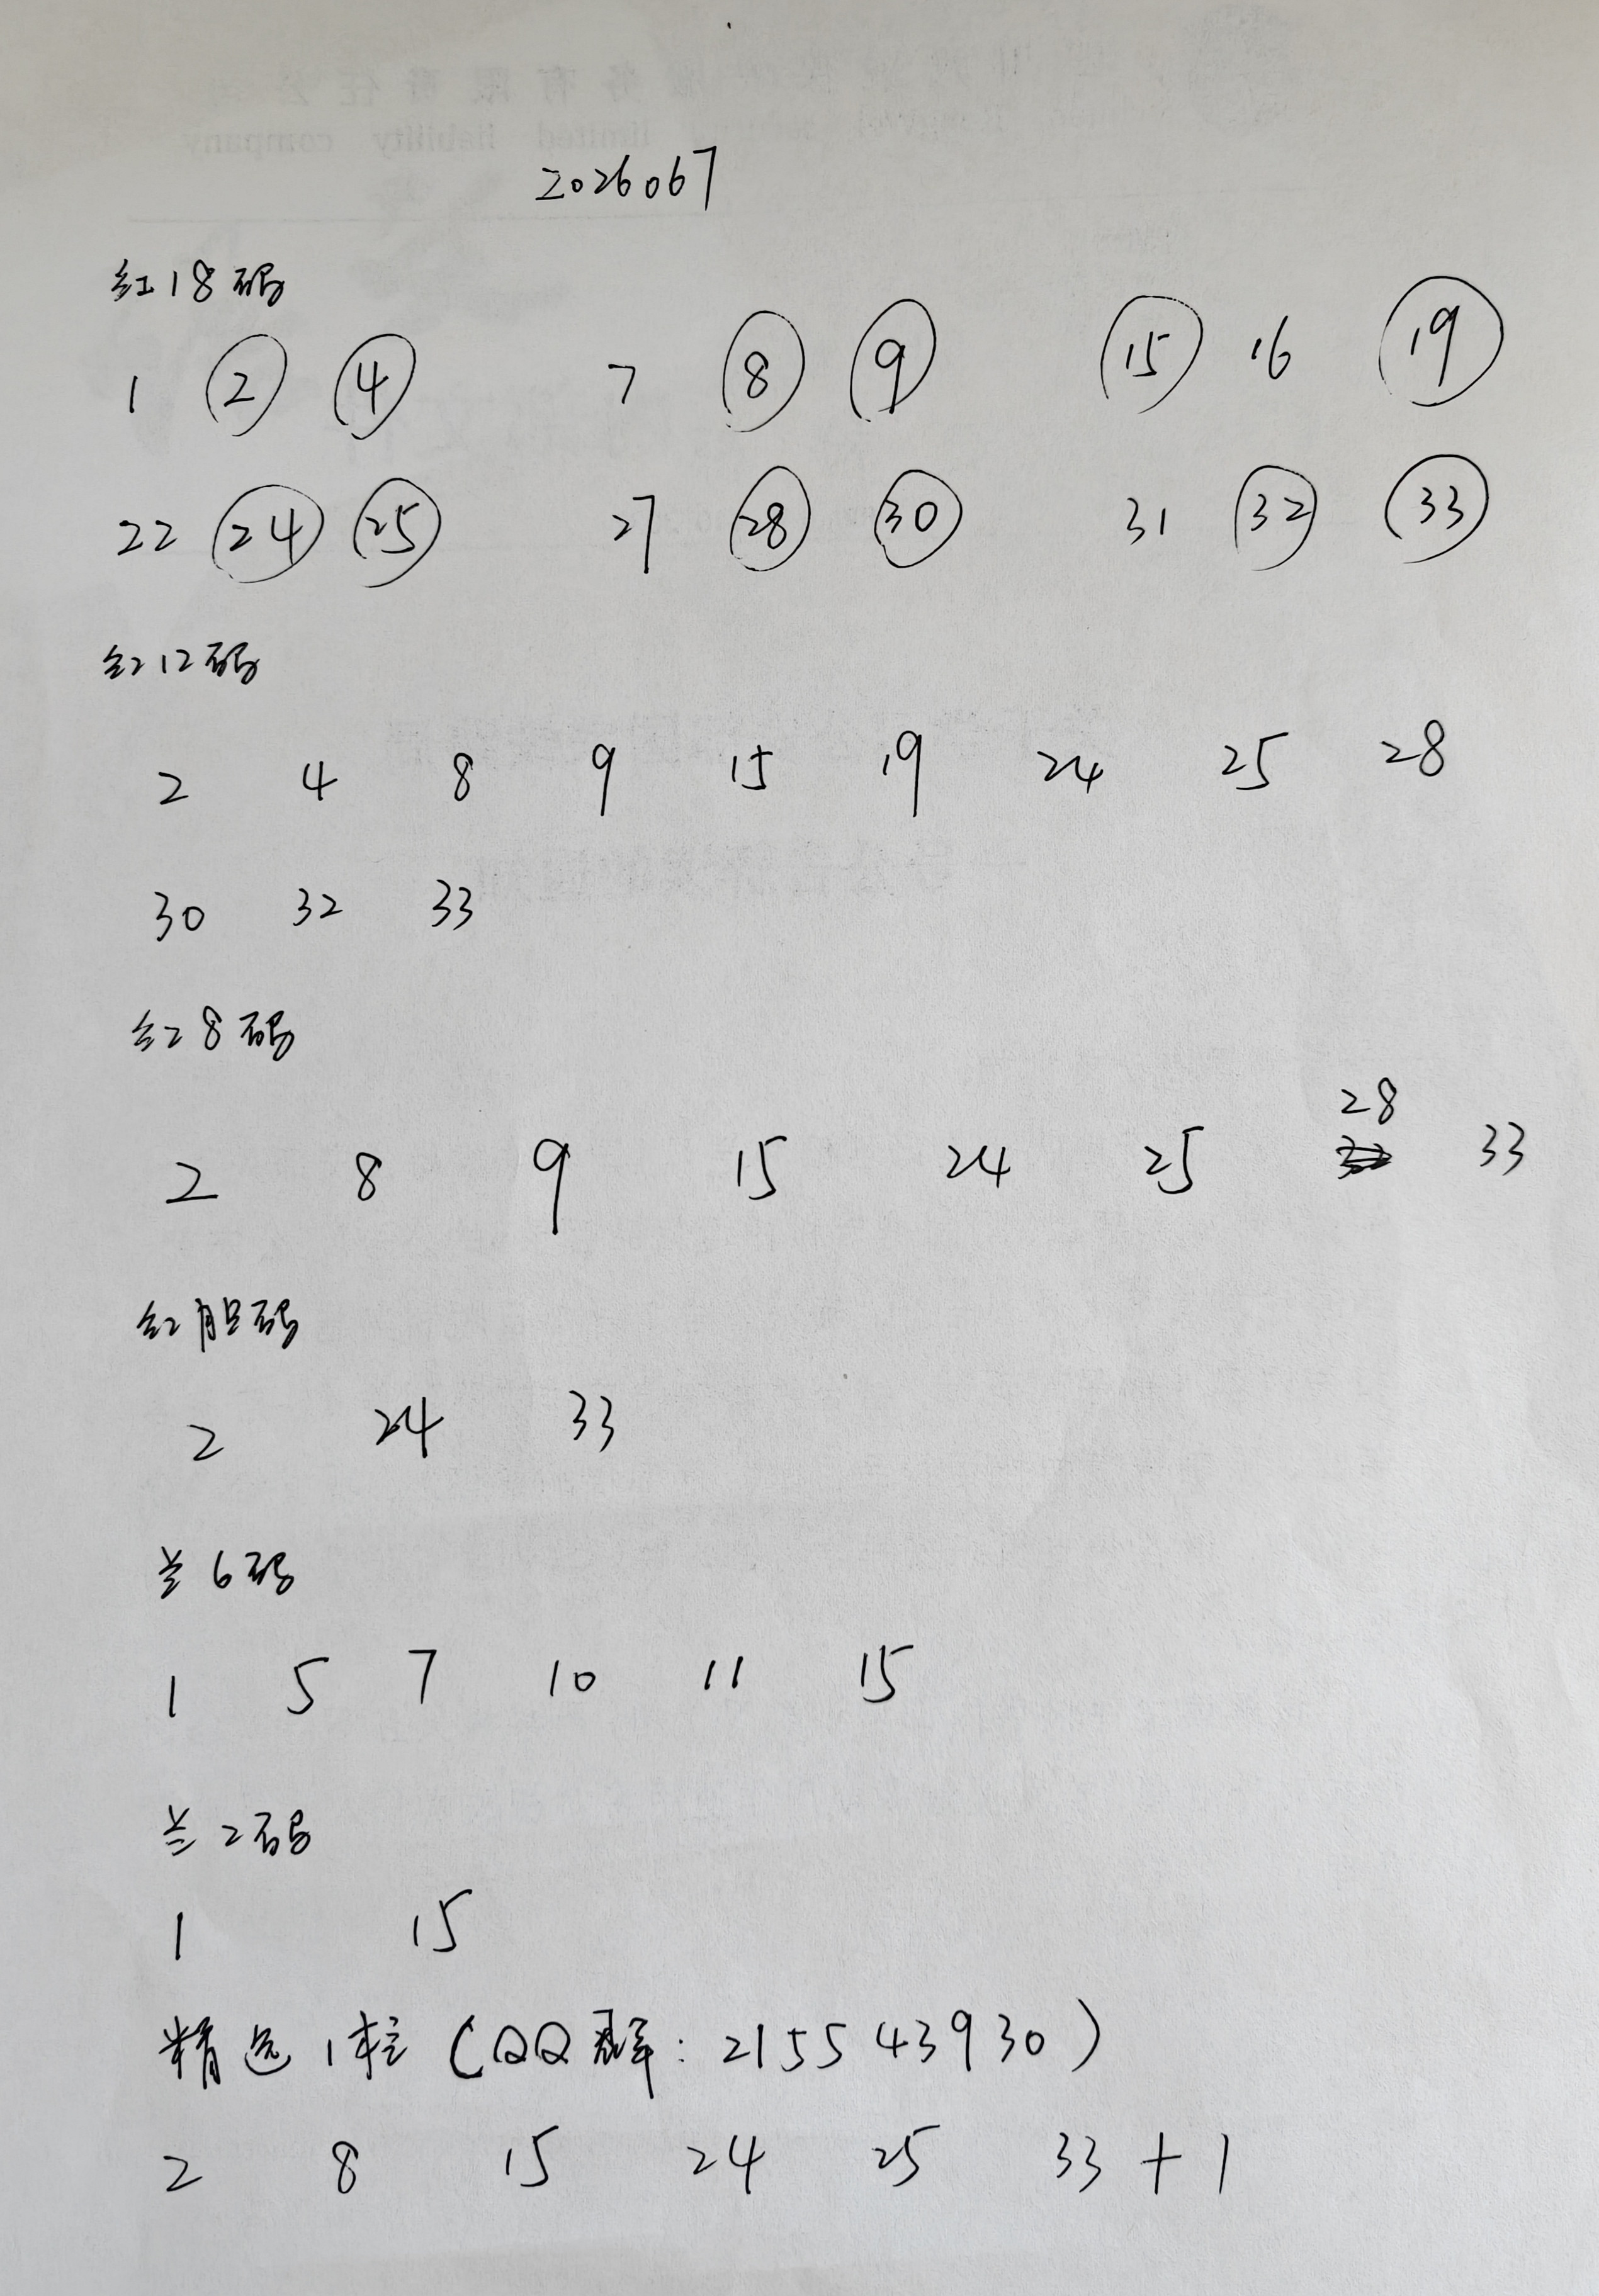 2026067
红18码
1 2 4 7 8 9 15 16 19
22 24 25 27 28 30 31 32 33
红12码
2 4 8 9 15 19 24 25 28
30 32 33
红8码
28
2 8 9 15 24 25 33
红胆码
2 24 33
兰6码
1 5 7 10 11 15
兰2码
1 15
精选1注(QQ群:215543930)
2 8 15 24 25 33+1
limited liability company